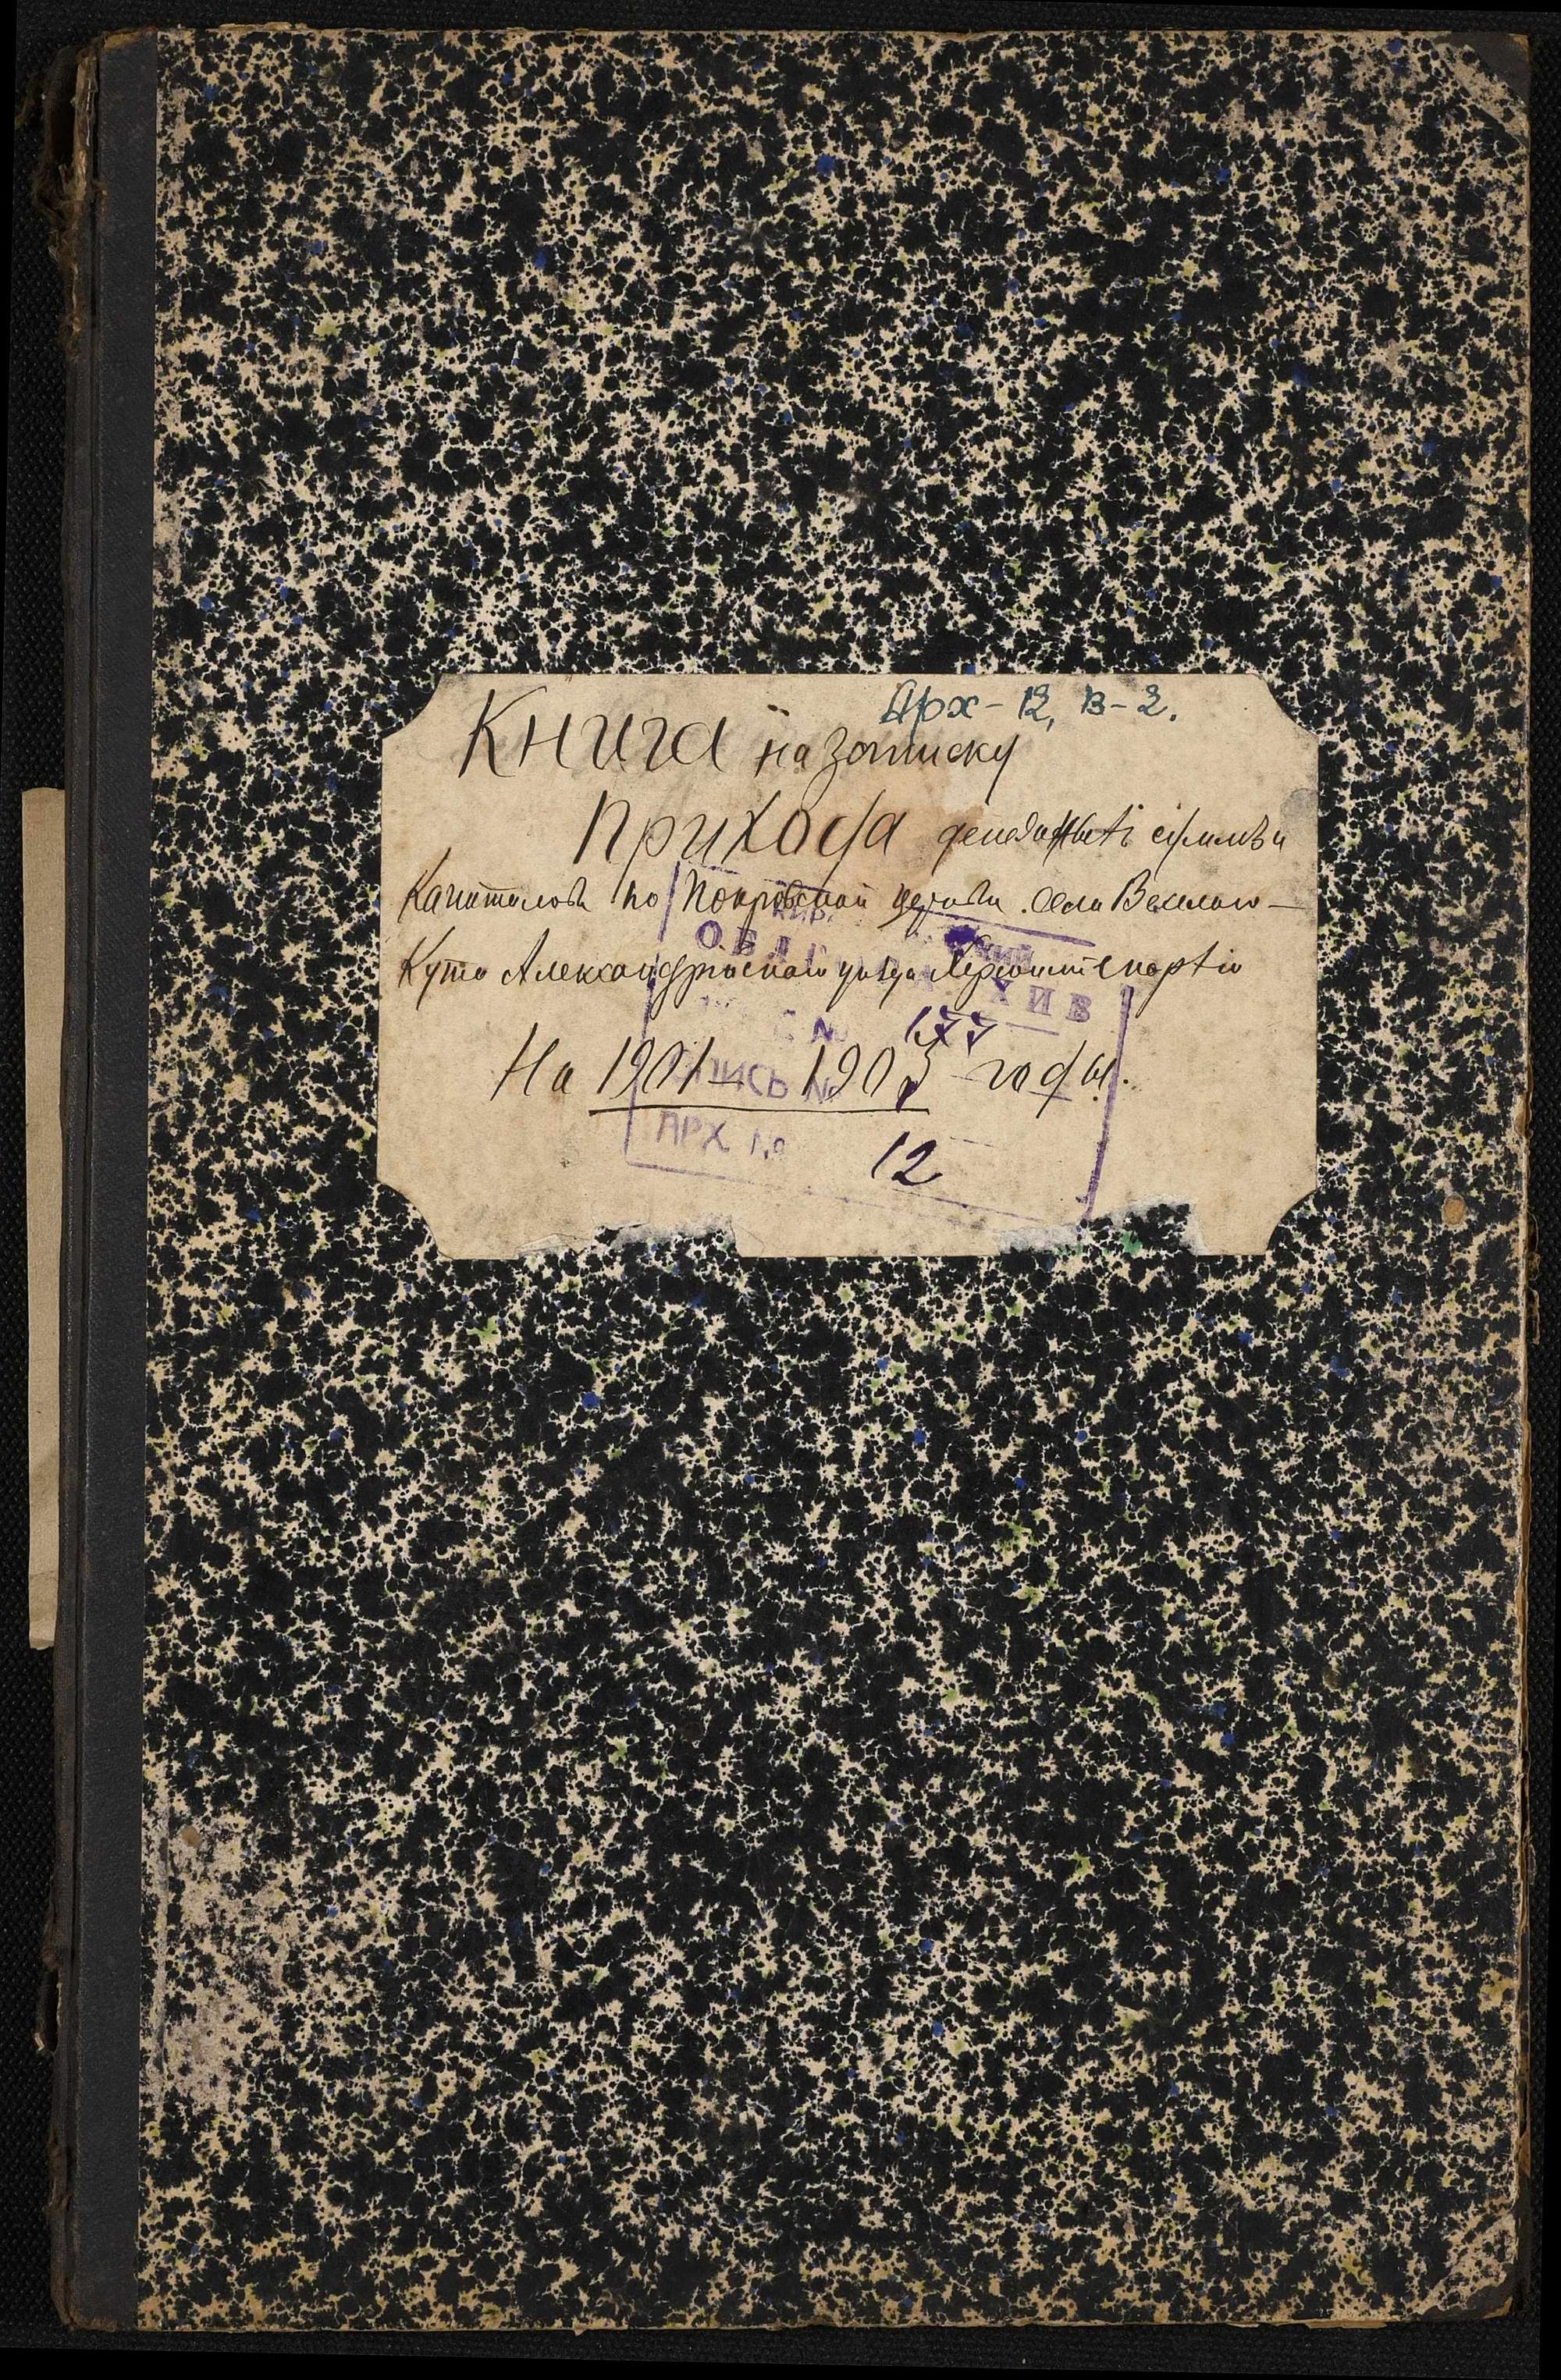 Арх-12, в-2.
Книга на записку
Прихода денежныхъ суммъ и
Капиталовъ по Покровской церкви села Веселаго-
Кута Александрійскаго уѣзда Херсонск епархіи
На 1901 — 1905 годы.
ОБЛ ХИВ
№ 177
ПИСЬ №
АРХ № 12